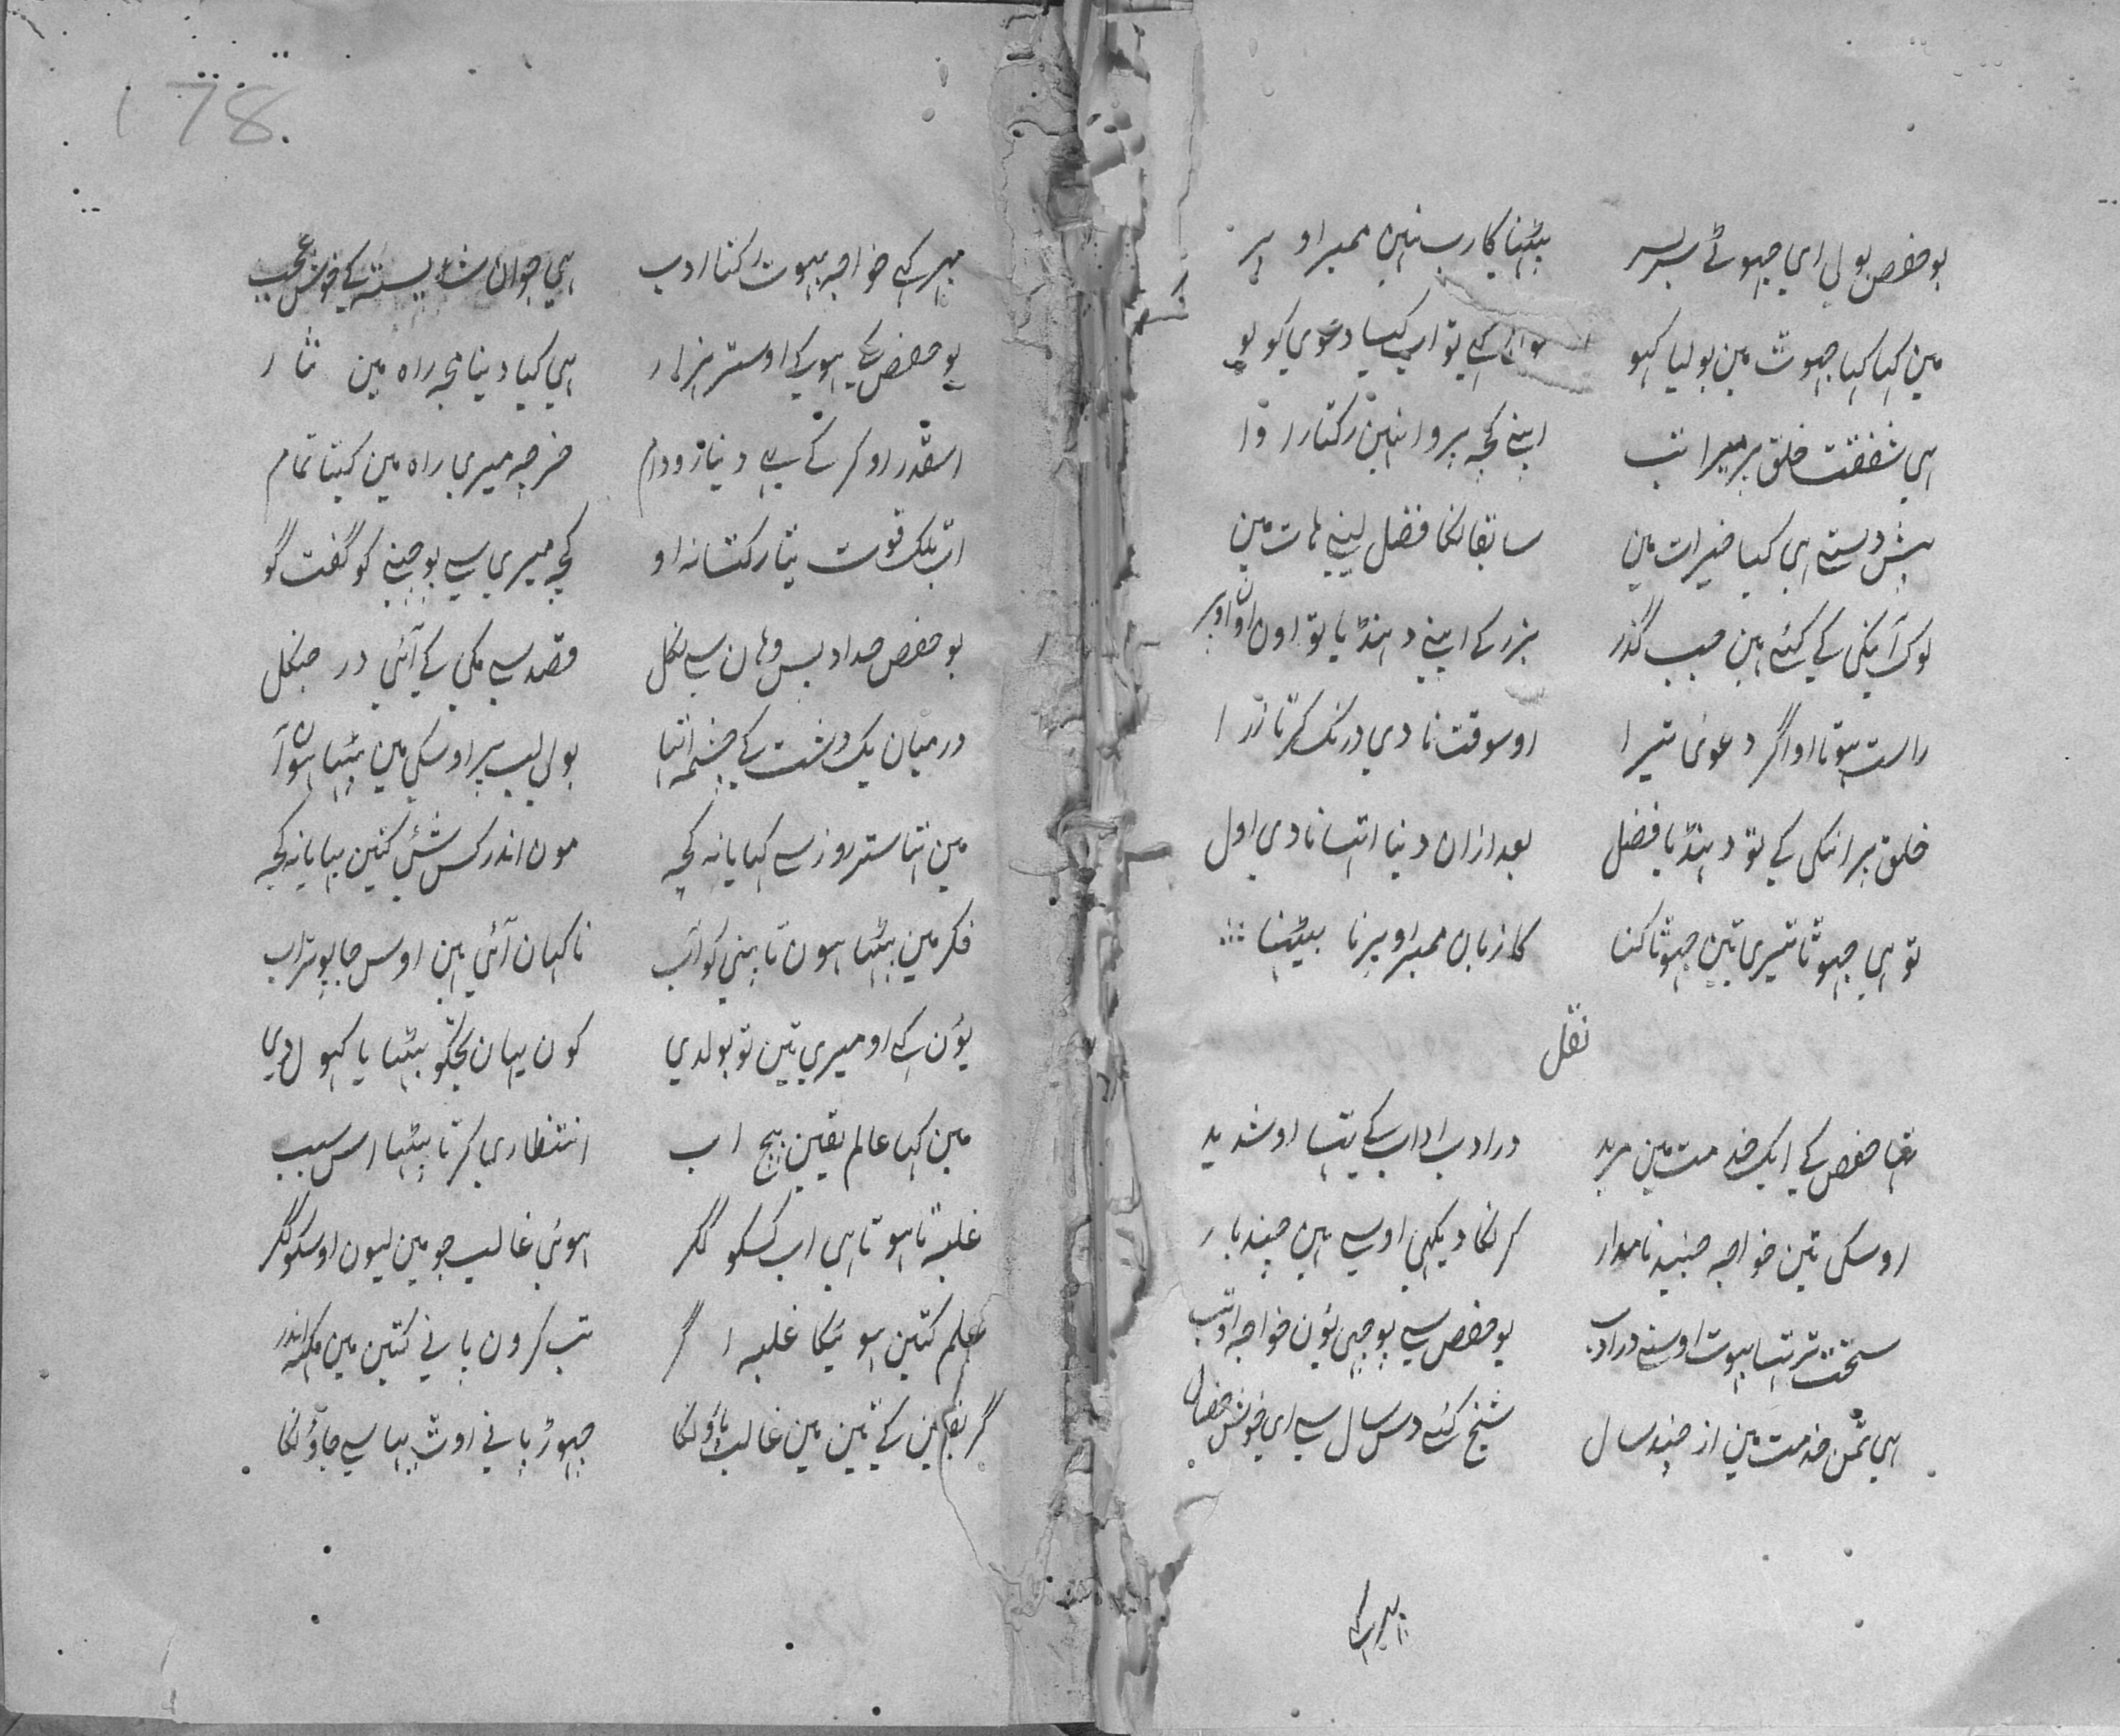 178.
بوحفص بولی ای جہوٹے سربسر بیٹہنا کا رب نہیں ممبر او پر
مین کہا کیا جہوٹ مین بولیا کہو کہے تو اب کیا دعوی کو
ہی شفقت خلق پر میرا تب اپنے کچہ پروا نہین رکتا را وا
پیش دستے ہی کیا خیرات مین سابقا لکا فضل لینے ہات مین
لوک نیکی کے کئے ہین جب گذر بزر کے اپنے دہنڈیا تو اون اوپر
راست ہوتا او اگر دعوی تیرا اوسوقت نا دی درنگ کرتا ذرا
خلق پر انکی کے تو دہنڈیا فضل بعد ازان دینا اتہا نا دی اول
تو ہی جہوٹا تیری تین جہوٹا کنا کا زبان ممبر اوپر نا بیٹہنا
نقل
تہا حفص کے ایک خدمت مین مرید در ادب اداب کے تہا او شدید
اوسکی تین خواجہ جنید نامدار کر لکا دیکہی اوسے ہین چند بار
سخت تر تہا بہوت اوسے در ادب بوحفص سے پوچہی یون خواجہ
ہی تمن خدمت مین از چند سال شیخ کئے دس سال سے ای خوش خصال
پہر کہے خواجہ بہوت رکتا ادب ہی جوان شایستہ کے خوش عجب
بوحفص کہے ہور کے اوستر ہزار ہی کیا دینا مجہ راہ مین نثار
اسقدر اور کر کے ہے دینار و دام خرچہ میری راہ مین کیتا تمام
اب تلک قوت یتا رکتا نہ او کچہ میری سے پوچہنے کو گفت گو
بوحفص حداد بس وہان سے نکل قصد سے مکی کے آئی در جنگل
درمیان یک دشت کے چشمہ اتہا بولی لب پر اوسکی مین بیٹہا ہون آ
مین اتہا ستر روز سے کہایا نہ کچہ مون اندر کس شئی کتین پیایا نہ کچہ
فکر مین بیٹہا ہون تا پنی کو آب ناکہان آئی ہین اوس جا بوتراب
یون کہے او میری تین تو بولدی کون یہان تجکو بیٹہایا کہولدی
مین کہا عالم یقین بیچ اب انتظاری کرتا بیٹہا اس سبب
غلبہ تا ہوتا ہی اب کسکو مگر ہوئی غالب جو مین لیون اوسکو مگر
علم کتین ہو ئیکا غلبہ اگر تب کرون پانے کتین مین
گر یقین کے تین مین غالب پاؤنکا چہوڑ پانے اوٹ یہا سے جاؤنکا